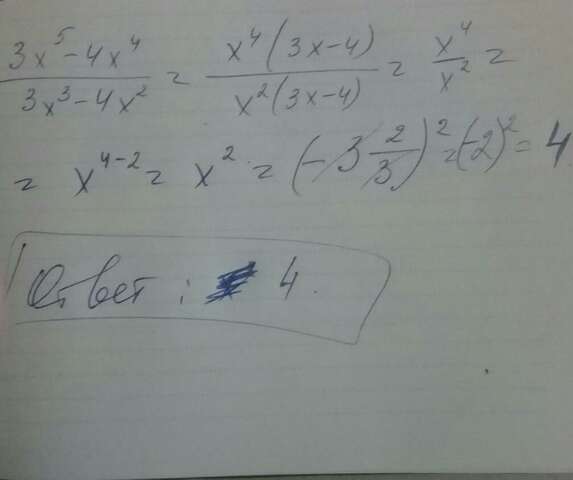 (3x⁵-4x⁴)/(3x³-4x²) = x⁴(3x-4)/x²(3x-4) = x⁴/x² =
= x⁴⁻² = x² = (-3 2/3)² = (-2)² = 4
Ответ : 4.